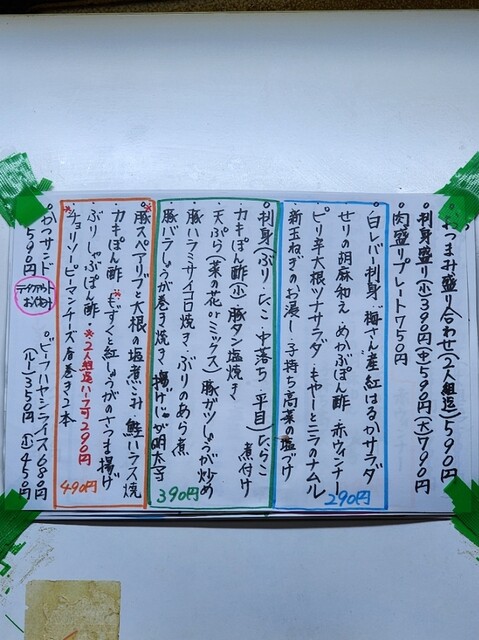 おつまみ盛り合わせ(2人組迄)590円
刺身盛り(小)390円(中)590円(大)790円
肉盛りプレート750円
白レバー刺身・梅さん産紅はるかサラダ
せりの胡麻和え めかぶぽん酢 赤ウィンナー
ピリ辛大根ツナサラダ もやしとニラのナムル
新玉ねぎのお浸し・子持ち高菜の塩づけ
290円
刺身(ぶり・たこ・中落ち・平目)たらこ煮付け
カキぽん酢(小)豚タン塩焼き
天ぷら(菜の花orミックス)豚ガツしょうが炒め
豚ハラミサイコロ焼き・ぶりのあら煮
豚バラしょうが巻き焼き・揚げじゃが明太子
390円
豚スペアリブと大根の塩煮こみ 鮭ハラス焼
カキぽん酢・もずくと紅しょうがのさつま揚げ
ぶりしゃぶぽん酢・※2人組迄ハーフ可290円
チョリソーピーマンチーズ春巻き2本
490円
かつサンド ビーフハヤシライス680円
590円 テイクアウトお化粧 (ルー)350円(小)450円